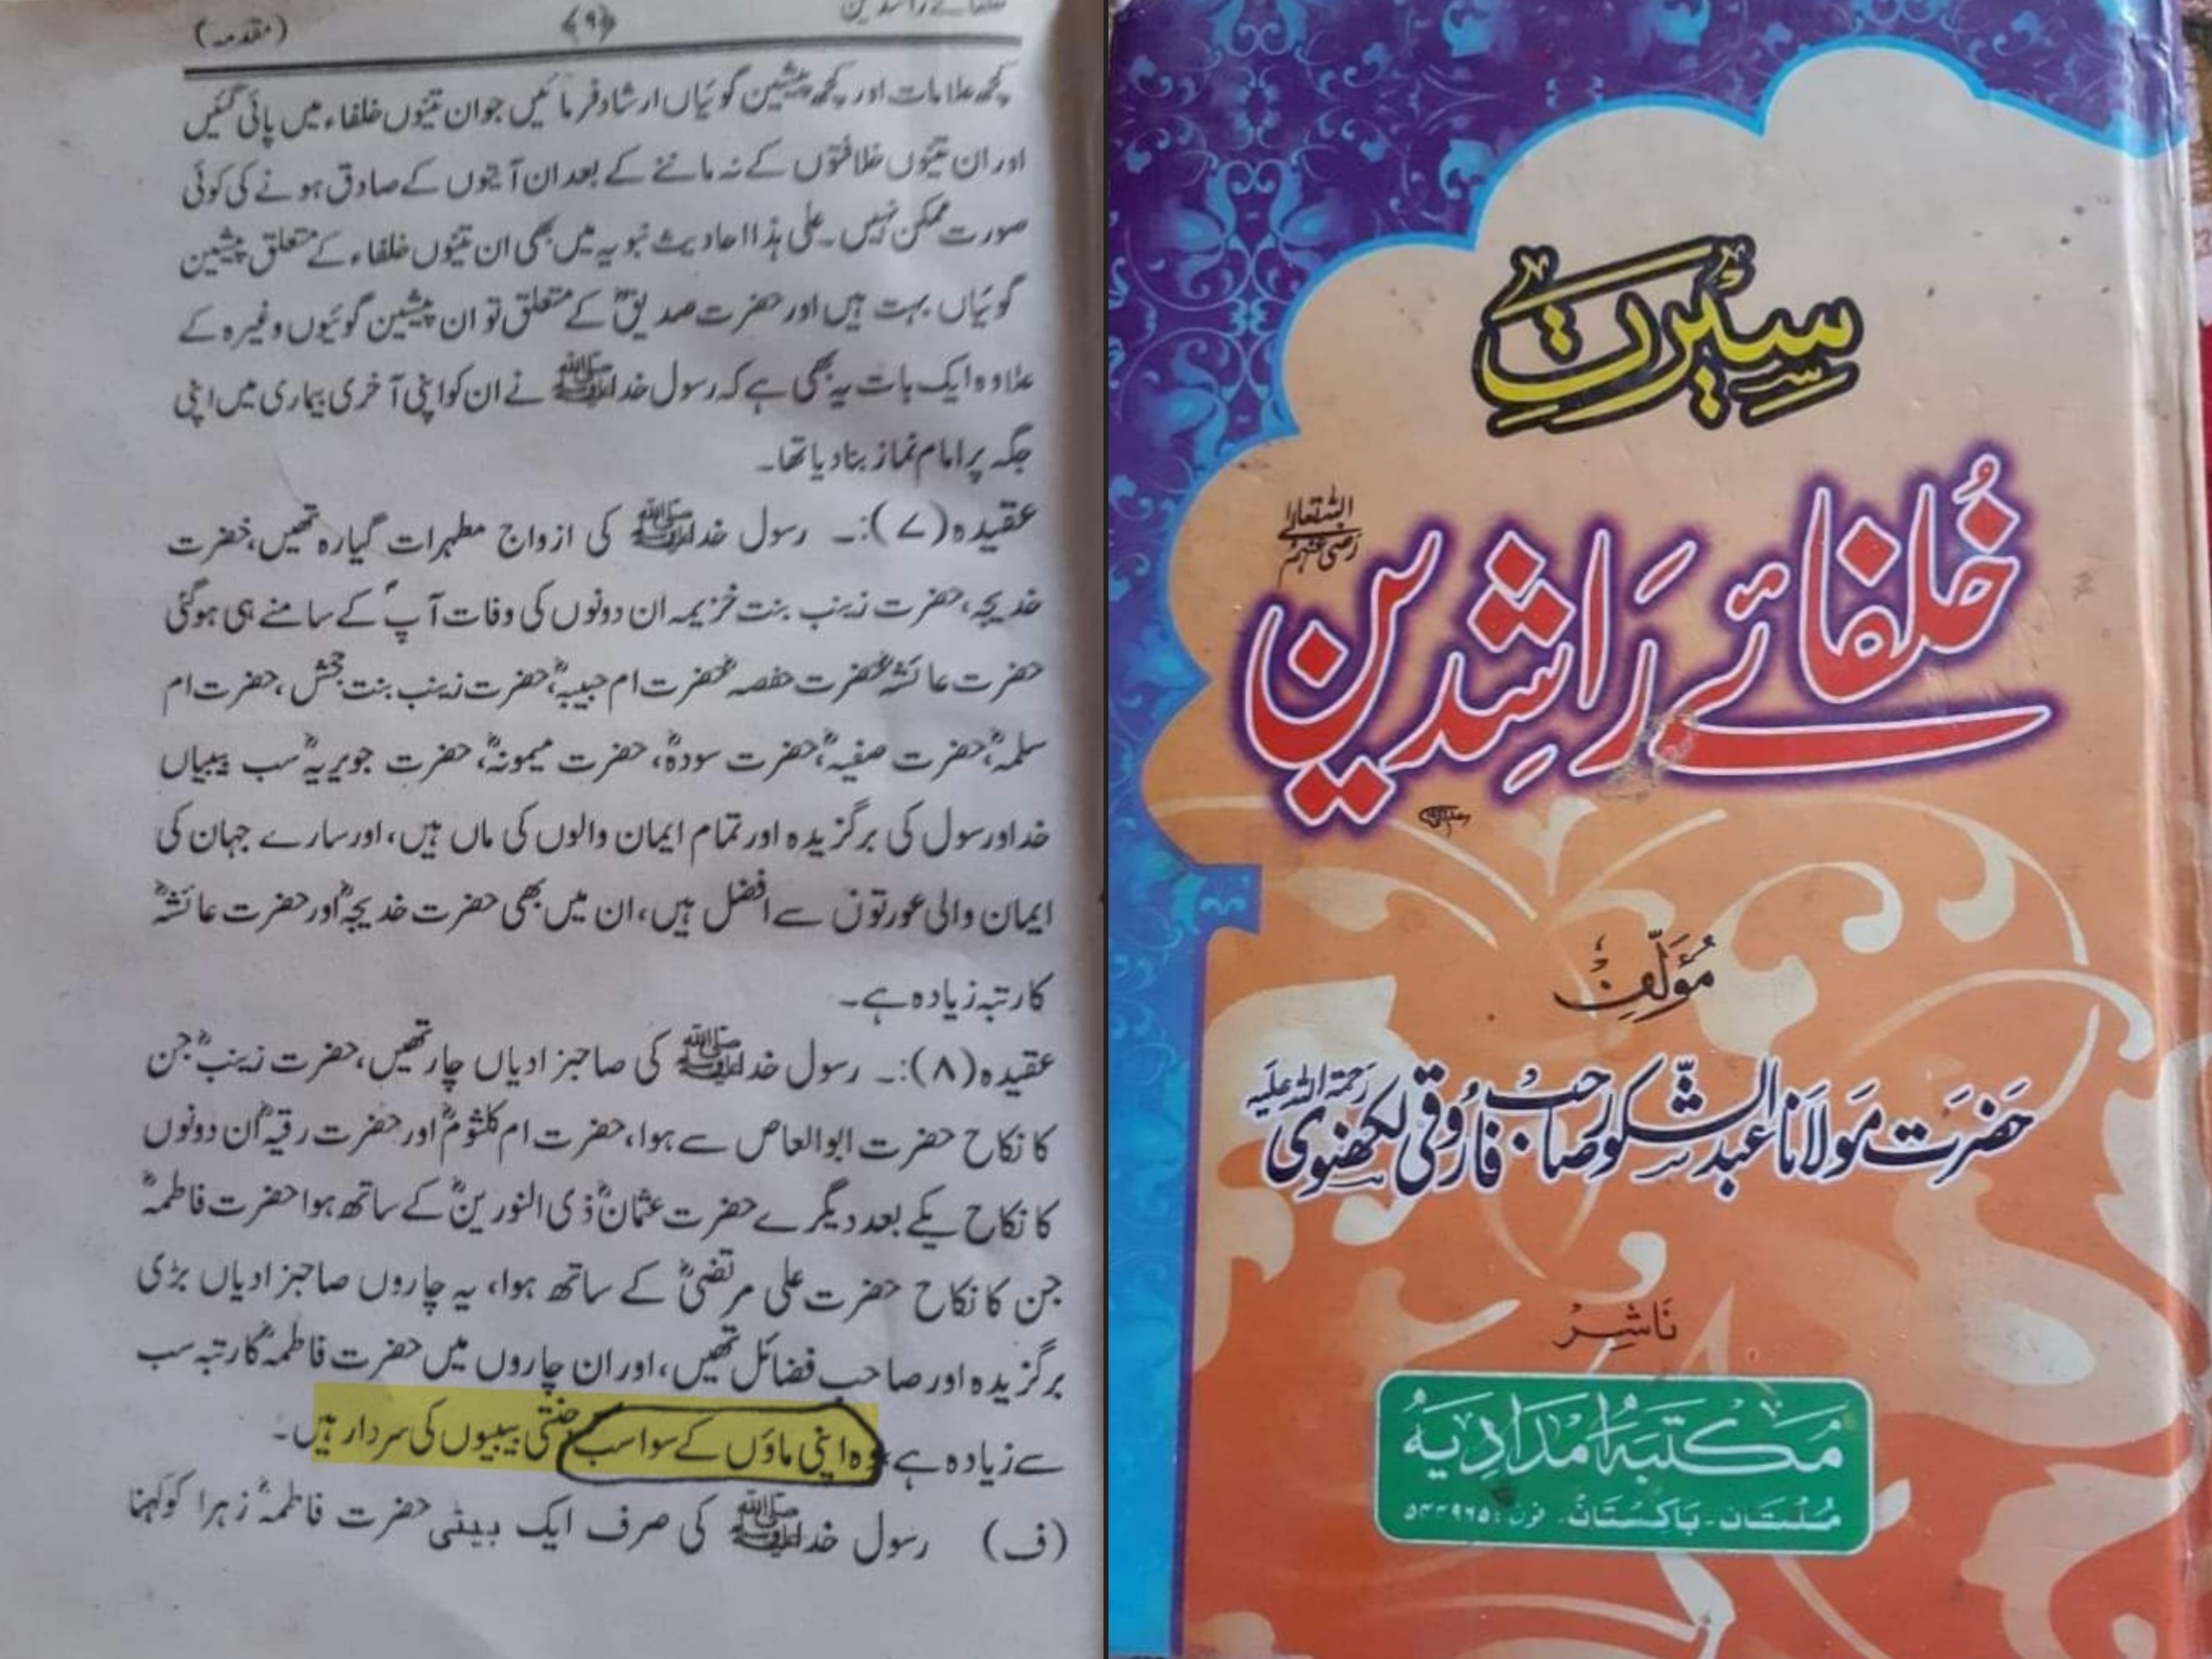 (مقدمہ)
﴿۹﴾
خلفائے راشدین
کچھ علامات اور کچھ پیشین گوئیاں ارشاد فرمائیں جو ان تینوں خلفاء میں پائی گئیں
اور ان تینوں خلافتوں کے نہ ماننے کے بعد ان آیتوں کے صادق ہونے کی کوئی
صورت ممکن نہیں۔ علی ہذا احادیث نبویہ میں بھی ان تینوں خلفاء کے متعلق پیشین
گوئیاں بہت ہیں اور حضرت صدیقؓ کے متعلق تو ان پیشین گوئیوں وغیرہ کے
علاوہ ایک بات یہ بھی ہے کہ رسول خدا ﷺ نے ان کو اپنی آخری بیماری میں اپنی
جگہ پر امام نماز بنا دیا تھا۔
عقیدہ (۷):۔ رسول خدا ﷺ کی ازواج مطہرات گیارہ تھیں، حضرت
خدیجہ، حضرت زینب بنت خزیمہ ان دونوں کی وفات آپؐ کے سامنے ہی ہوگئی
حضرت عائشہؓ حضرت حفصہؓ حضرت ام حبیبہؓ، حضرت زینب بنت جحش، حضرت ام
سلمہؓ، حضرت صفیہؓ، حضرت سودہؓ، حضرت میمونہؓ، حضرت جویریہؓ سب بیبیاں
خدا اور رسول کی برگزیدہ اور تمام ایمان والوں کی ماں ہیں، اور سارے جہان کی
ایمان والی عورتوں سے افضل ہیں، ان میں بھی حضرت خدیجہؓ اور حضرت عائشہؓ
کا رتبہ زیادہ ہے۔
عقیدہ (۸):۔ رسول خدا ﷺ کی صاحبزادیاں چار تھیں، حضرت زینبؓ جن
کا نکاح حضرت ابوالعاص سے ہوا، حضرت ام کلثومؓ اور حضرت رقیہؓ ان دونوں
کا نکاح یکے بعد دیگرے حضرت عثمانؓ ذی النورینؓ کے ساتھ ہوا حضرت فاطمہؓ
جن کا نکاح حضرت علی مرتضیؓ کے ساتھ ہوا، یہ چاروں صاحبزادیاں بڑی
برگزیدہ اور صاحب فضائل تھیں، اور ان چاروں میں حضرت فاطمہؓ کا رتبہ سب
سے زیادہ ہے، وہ اپنی ماؤں کے سوا سب جنتی بیبیوں کی سردار ہیں۔
(ف) رسول خدا ﷺ کی صرف ایک بیٹی حضرت فاطمہؓ زہرا کو کہنا
سِیرَتِ
خُلفائے رَاشِدین
رضی اللہ تعالےٰ عنہم
مؤلّف
حَضرَت مَولَانا عَبد الشّکور صاحب فَارُوقی لکھنوی رَحمۃ اللہ علَیہ
نَاشِر
مَکتَبۂ امدَادِیَہ
مُلتَان ۔ پَاکِستَان ۔ فون : ۵۴۴۹۶۵